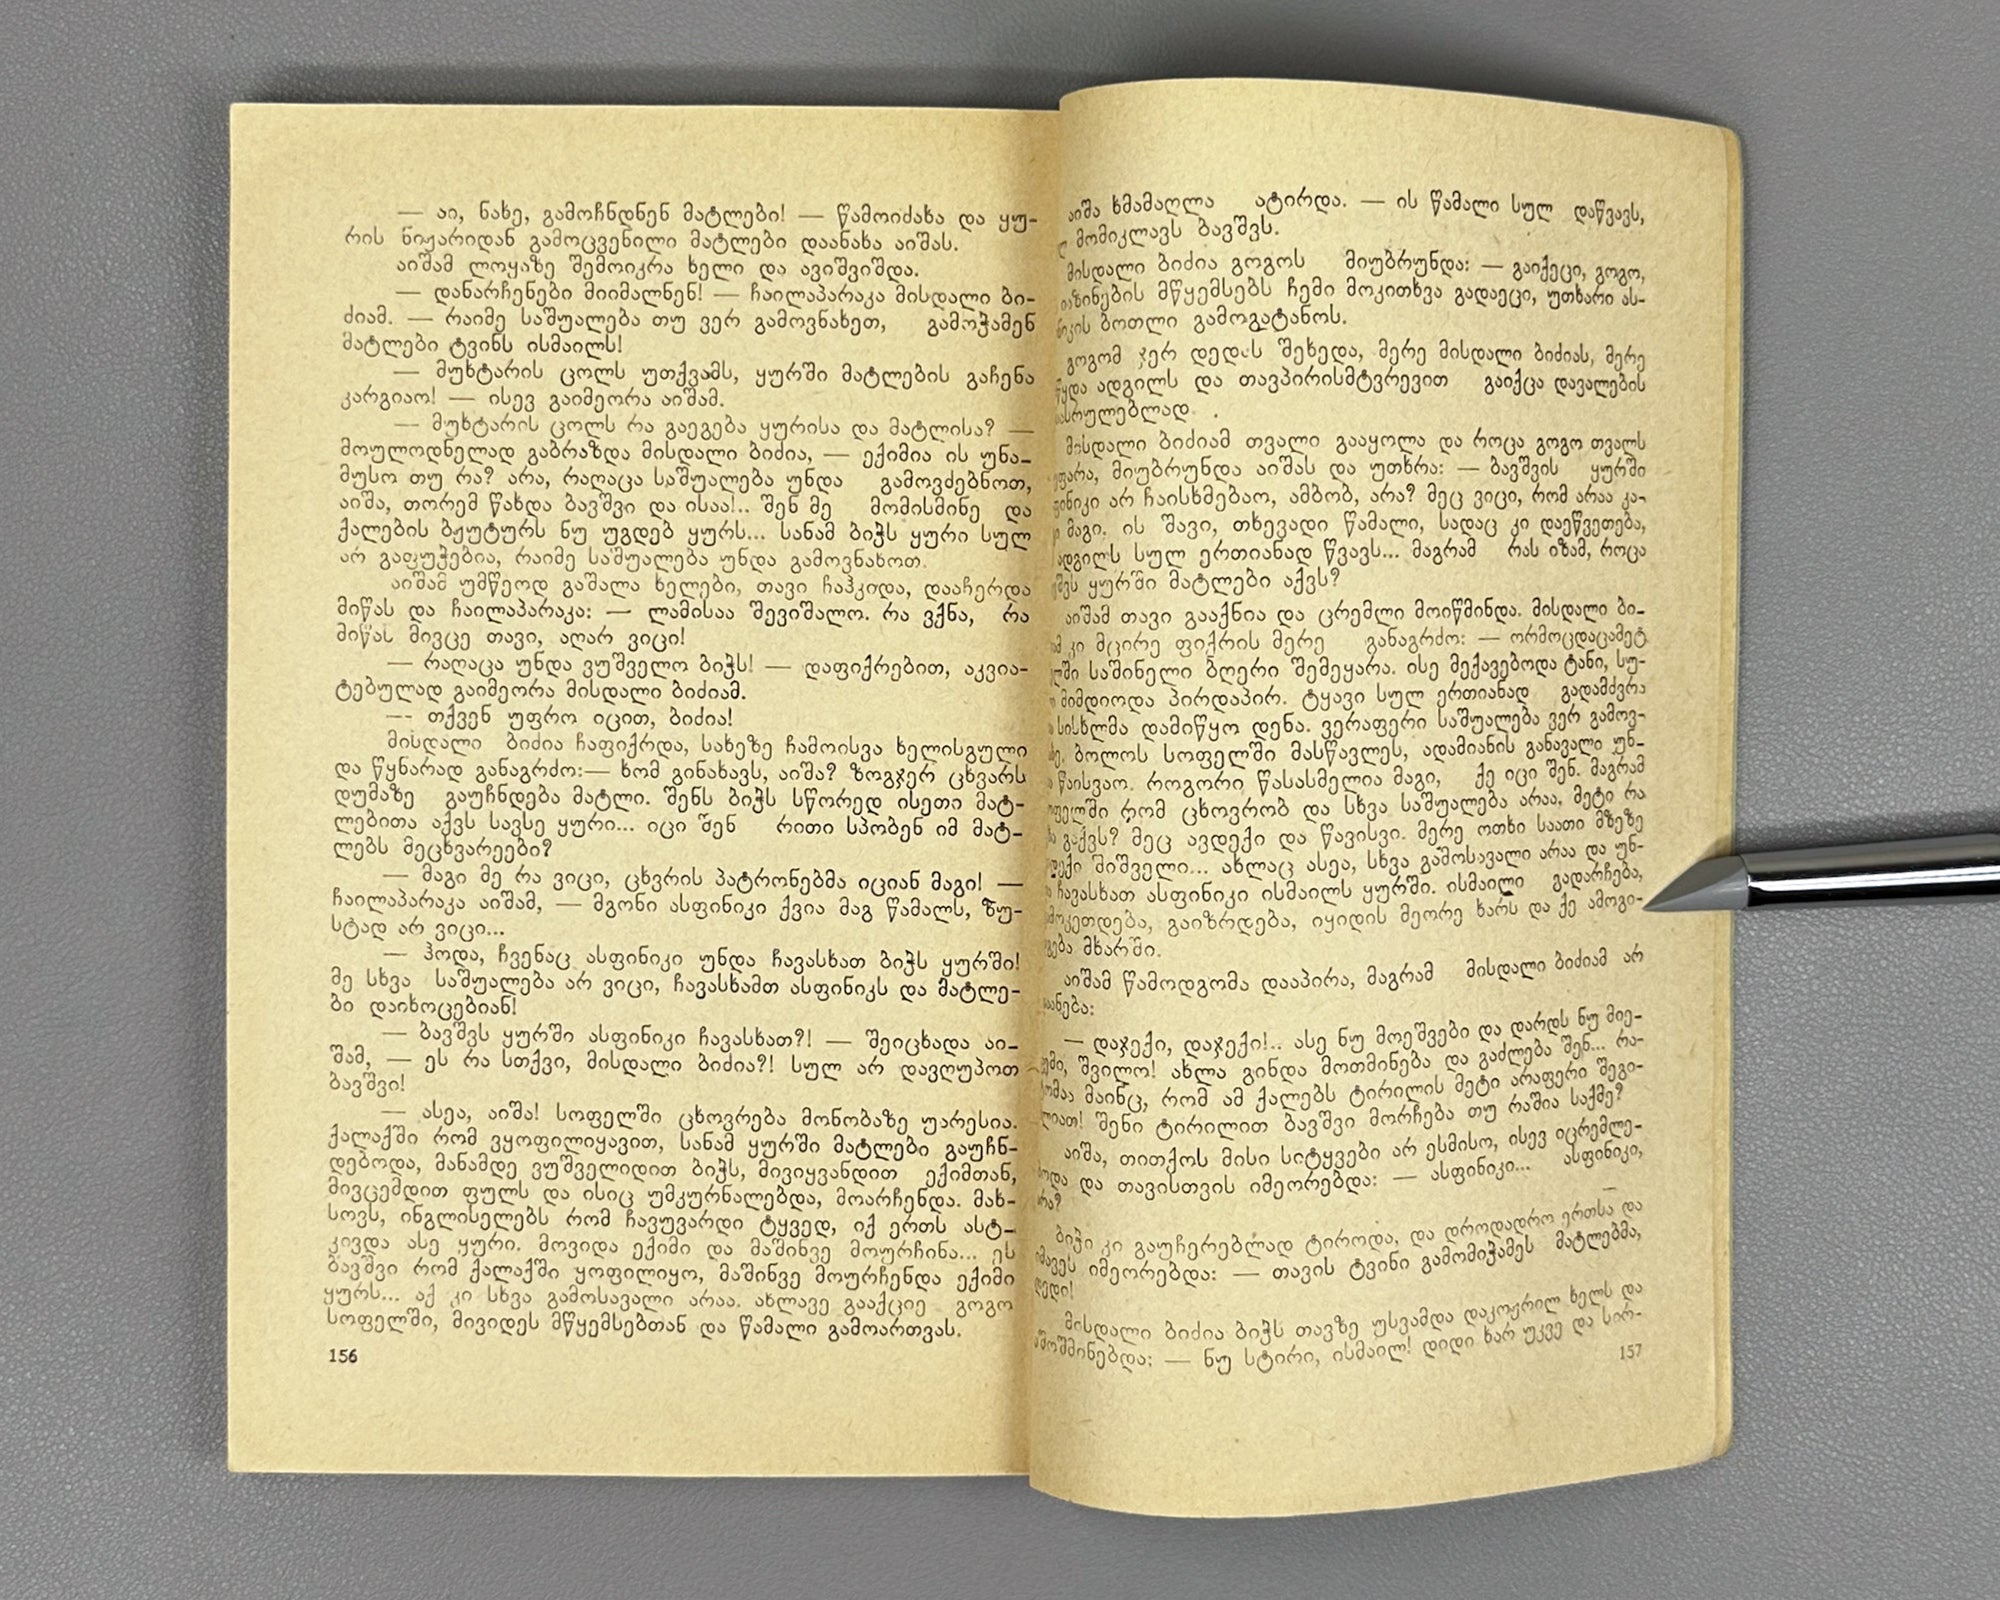 — აი, ნახე, გამოჩნდნენ მატლები! — წამოიძახა და ყუ-
რის ნიჟარიდან გამოცვენილი მატლები დაანახა აიშას.
აიშამ ლოყაზე შემოიკრა ხელი და ავიშვიშდა.
— დანარჩენები მიიმალნენ! — ჩაილაპარაკა მისდალი ბი-
ძიამ. — რაიმე საშუალება თუ ვერ გამოვნახეთ, გამოჭამენ
მატლები ტვინს ისმაილს!
— მუხტარის ცოლს უთქვამს, ყურში მატლების გაჩენა
კარგიაო! — ისევ გაიმეორა აიშამ.
— მუხტარის ცოლს რა გაეგება ყურისა და მატლისა? —
მოულოდნელად გაბრაზდა მისდალი ბიძია, — ექიმია ის უნა-
მუსო თუ რა? არა, რაღაცა საშუალება უნდა გამოვძებნოთ,
აიშა, თორემ წახდა ბავშვი და ისაა!.. შენ მე მომისმინე და
ქალების ბჟუტურს ნუ უგდებ ყურს... სანამ ბიჭს ყური სულ
არ გაფუჭებია, რაიმე საშუალება უნდა გამოვნახოთ.
აიშამ უმწეოდ გაშალა ხელები, თავი ჩაჰკიდა, დააჩერდა
მიწას და ჩაილაპარაკა: — ლამისაა შევიშალო. რა ვქნა, რა
მიწას მივცე თავი, აღარ ვიცი!
— რაღაცა უნდა ვუშველო ბიჭს! — დაფიქრებით, აკვია-
ტებულად გაიმეორა მისდალი ბიძიამ.
— თქვენ უფრო იცით, ბიძია!
მისდალი ბიძია ჩაფიქრდა, სახეზე ჩამოისვა ხელისგული
და წყნარად განაგრძო:— ხომ გინახავს, აიშა? ზოგჯერ ცხვარს
დუმაზე გაუჩნდება მატლი. შენს ბიჭს სწორედ ისეთი მატ-
ლებითა აქვს სავსე ყური... იცი შენ რითი სპობენ იმ მატ-
ლებს მეცხვარეები?
— მაგი მე რა ვიცი, ცხვრის პატრონებმა იციან მაგი! —
ჩაილაპარაკა აიშამ, — მგონი ასფინიკი ქვია მაგ წამალს, ზუ-
სტად არ ვიცი...
— ჰოდა, ჩვენაც ასფინიკი უნდა ჩავასხათ ბიჭს ყურში!
მე სხვა საშუალება არ ვიცი, ჩავასხამთ ასფინიკს და მატლე-
ბი დაიხოცებიან!
— ბავშვს ყურში ასფინიკი ჩავასხათ?! — შეიცხადა აი-
შამ, — ეს რა სთქვი, მისდალი ბიძია?! სულ არ დავღუპოთ
ბავშვი!
— ასეა, აიშა! სოფელში ცხოვრება მონობაზე უარესია.
ქალაქში რომ ვყოფილიყავით, სანამ ყურში მატლები გაუჩნ-
დებოდა, მანამდე ვუშველიდით ბიჭს, მივიყვანდით ექიმთან,
მივცემდით ფულს და ისიც უმკურნალებდა, მოარჩენდა. მახ-
სოვს, ინგლისელებს რომ ჩავუვარდი ტყვედ, იქ ერთს ასტ-
კივდა ასე ყური. მოვიდა ექიმი და მაშინვე მოურჩინა... ეს
ბავშვი რომ ქალაქში ყოფილიყო, მაშინვე მოურჩენდა ექიმი
ყურს... აქ კი სხვა გამოსავალი არაა. ახლავე გააქციე გოგო
სოფელში, მივიდეს მწყემსებთან და წამალი გამოართვას.
156
აიშა ხმამაღლა ატირდა. — ის წამალი სულ დაწვავს,
მომიკლავს ბავშვს.
მისდალი ბიძია გოგოს მიუბრუნდა: — გაიქეცი, გოგო,
მწყემსებს ჩემი მოკითხვა გადაეცი, უთხარი ას-
ბოთლი გამოგატანოს.
გოგომ ჯერ დედას შეხედა, მერე მისდალი ბიძიას, მერე
ადგილს და თავპირისმტვრევით გაიქცა დავალების
მისდალი ბიძიამ თვალი გააყოლა და როცა გოგო თვალს
მიუბრუნდა აიშას და უთხრა: — ბავშვის ყურში
არ ჩაისხმებაო, ამბობ, არა? მეც ვიცი, რომ არაა კა-
მაგი. ის შავი, თხევადი წამალი, სადაც კი დაეწვეთება,
ადგილს სულ ერთიანად წვავს... მაგრამ რას იზამ, როცა
ყურში მატლები აქვს?
აიშამ თავი გააქნია და ცრემლი მოიწმინდა. მისდალი ბი-
კი მცირე ფიქრის მერე განაგრძო: — ორმოცდაცამეტ
საშინელი ბღერი შემეყარა. ისე მექავებოდა ტანი, სუ-
მიმდიოდა პირდაპირ. ტყავი სულ ერთიანად გადამძვრა
სისხლმა დამიწყო დენა. ვერაფერი საშუალება ვერ გამოვ-
ბოლოს სოფელში მასწავლეს, ადამიანის განავალი უნ-
წაისვაო. როგორი წასასმელია მაგი, ქე იცი შენ. მაგრამ
რომ ცხოვრობ და სხვა საშუალება არაა, მეტი რა
გაქვს? მეც ავდექი და წავისვი. მერე ოთხი საათი მზეზე
შიშველი... ახლაც ასეა, სხვა გამოსავალი არაა და უნ-
ჩავასხათ ასფინიკი ისმაილს ყურში. ისმაილი გადარჩება,
გაიზრდება, იყიდის მეორე ხარს და ქე ამოგი-
მხარში.
აიშამ წამოდგომა დააპირა, მაგრამ მისდალი ბიძიამ არ
— დაჯექი, დაჯექი!.. ასე ნუ მოეშვები და დარდს ნუ მიე-
შვილო! ახლა გინდა მოთმინება და გაძლება შენ... რა-
მაინც, რომ ამ ქალებს ტირილის მეტი არაფერი შეგი-
შენი ტირილით ბავშვი მორჩება თუ რაშია საქმე?
აიშა, თითქოს მისი სიტყვები არ ესმისო, ისევ იცრემლე-
და თავისთვის იმეორებდა: — ასფინიკი... ასფინიკი,
ბიჭი კი გაუჩერებლად ტიროდა, და დროდადრო ერთსა და
იმავეს იმეორებდა: — თავის ტვინი გამომიჭამეს მატლებმა,
დედი!
მისდალი ბიძია ბიჭს თავზე უსვამდა დაკოჟრილ ხელს და
— ნუ სტირი, ისმაილ! დიდი ხარ უკვე და სირ-
157